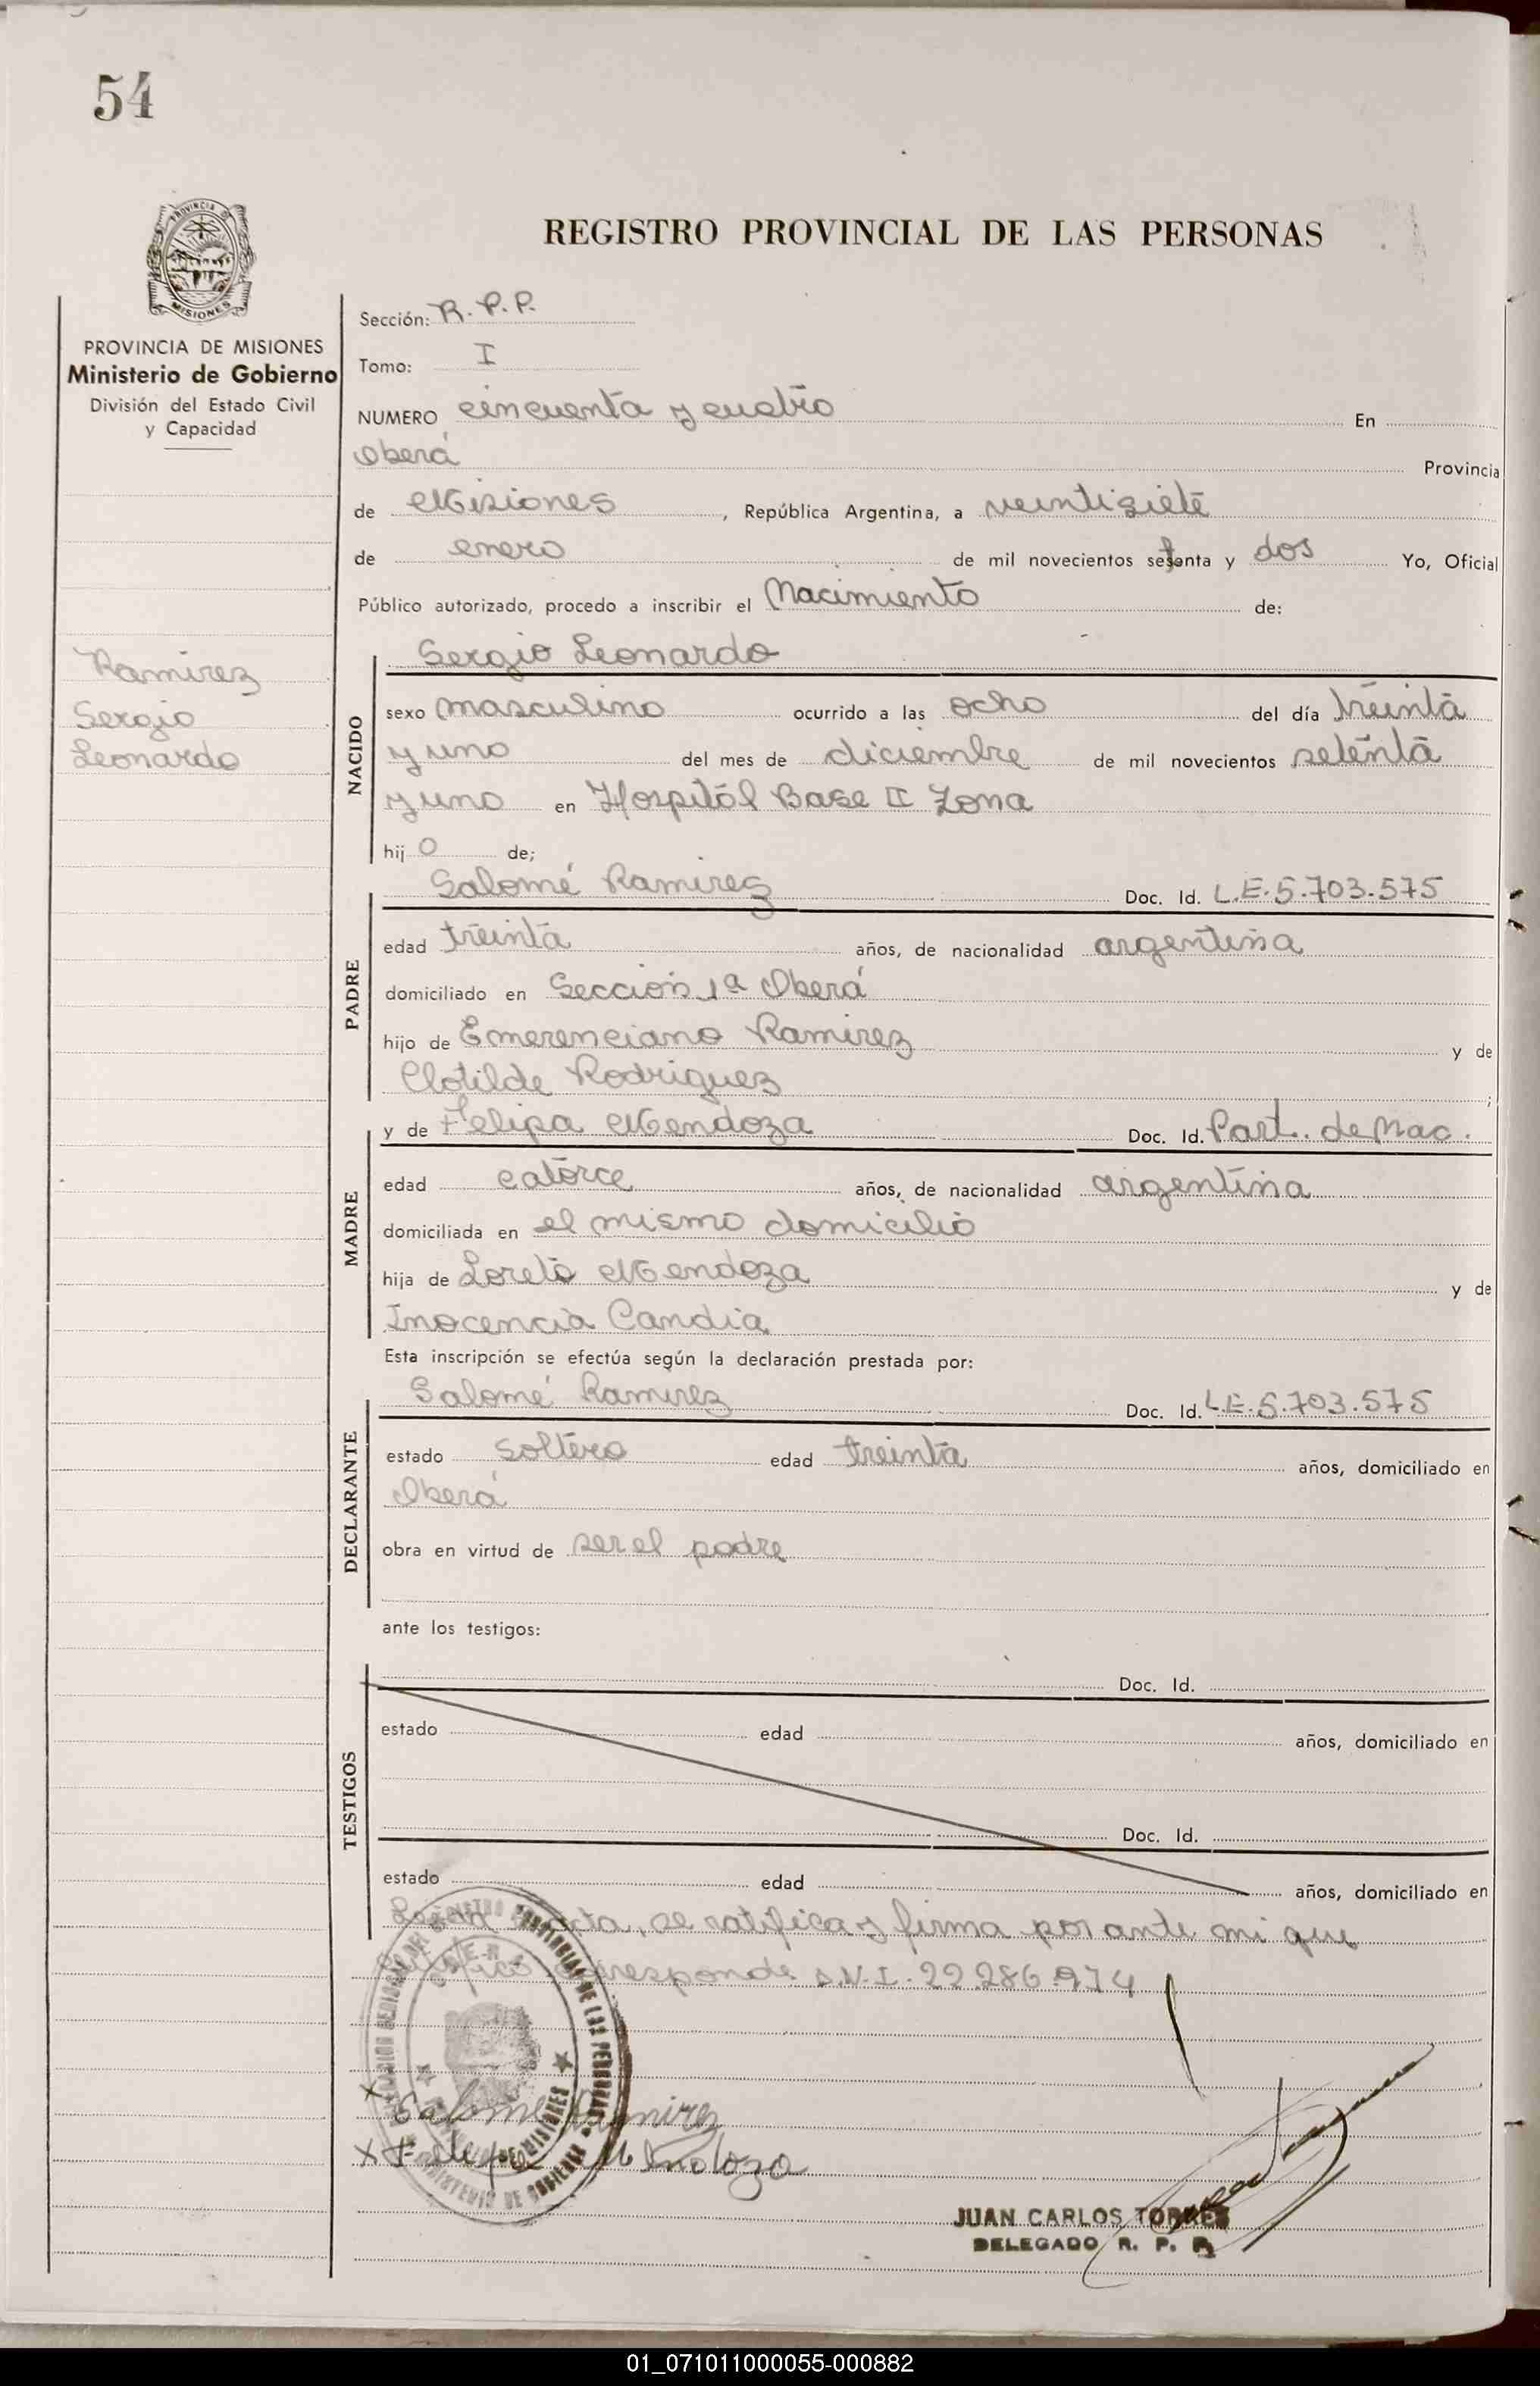 54
PROVINCIA DE
MISIONES
REGISTRO PROVINCIAL DE LAS PERSONAS
PROVINCIA DE MISIONES
Ministerio de Gobierno
División del Estado Civil
y Capacidad
Ramirez
Sergio
Leonardo
Sección: R. P. P.
Tomo: I
NUMERO cincuenta y cuatro En
Oberá Provincia
de Misiones, República Argentina, a veintisiete
de enero de mil novecientos setenta y dos Yo, Oficial
Público autorizado, procedo a inscribir el Nacimiento de:
NACIDO
Sergio Leonardo
sexo masculino ocurrido a las ocho del día treinta
y uno del mes de diciembre de mil novecientos setenta
y uno en Hospital Base II Zona
hij o de;
PADRE
Salomé Ramirez Doc. Id. L.E. 5.703.575
edad treinta años, de nacionalidad argentina
domiciliado en Sección 1ª Oberá
hijo de Emerenciano Ramirez y de
Clotilde Rodriguez ;
MADRE
y de Felipa Mendoza Doc. Id. Part. de Nac.
edad catorce años, de nacionalidad argentina
domiciliada en el mismo domicilio
hija de Loreto Mendoza y de
Inocencia Candia
Esta inscripción se efectúa según la declaración prestada por:
DECLARANTE
Salomé Ramirez Doc. Id. L.E. 5.703.575
estado soltero edad treinta años, domiciliado en
Oberá
obra en virtud de ser el padre
ante los testigos:
TESTIGOS
Doc. Id.
estado edad años, domiciliado en
Doc. Id.
estado edad años, domiciliado en
acta, se ratifica y firma por ante mi que
corresponde D.N.I. 22.286.974
x Salome Ramirez
x Felipa Mendoza
JUAN CARLOS TORRES
DELEGADO R. P. P.
01_071011000055-000882